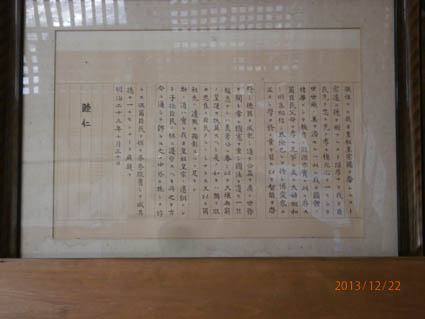 朕惟フニ我カ皇祖皇宗國ヲ肇ムルコト
宏遠ニ德ヲ樹ツルコト深厚ナリ我カ臣
民克ク忠ニ克ク孝ニ億兆心ヲ一ニシテ
世世厥ノ美ヲ濟セルハ此レ我カ國體ノ
精華ニシテ敎育ノ淵源亦實ニ此ニ存ス
爾臣民父母ニ孝ニ兄弟ニ友ニ夫婦相和
シ朋友相信シ恭儉己レヲ持シ博愛衆ニ
及ホシ學ヲ修メ業ヲ習ヒ以テ智能ヲ啓
發シ德器ヲ成就シ進テ公益ヲ廣メ世務
ヲ開キ常ニ國憲ヲ重シ國法ニ遵ヒ一旦
緩急アレハ義勇公ニ奉シ以テ天壤無窮
ノ皇運ヲ扶翼スヘシ是ノ如キハ獨リ朕
カ忠良ノ臣民タルノミナラス又以テ爾
祖先ノ遺風ヲ顯彰スルニ足ラン
斯ノ道ハ實ニ我カ皇祖皇宗ノ遺訓ニシ
テ子孫臣民ノ俱ニ遵守スヘキ所之ヲ古
今ニ通シテ謬ラス之ヲ中外ニ施シテ悖
ラス朕爾臣民ト俱ニ拳々服膺シテ咸其
德ヲ一ニセンコトヲ庶幾フ
明治二十三年十月三十日
睦仁
2013/12/22